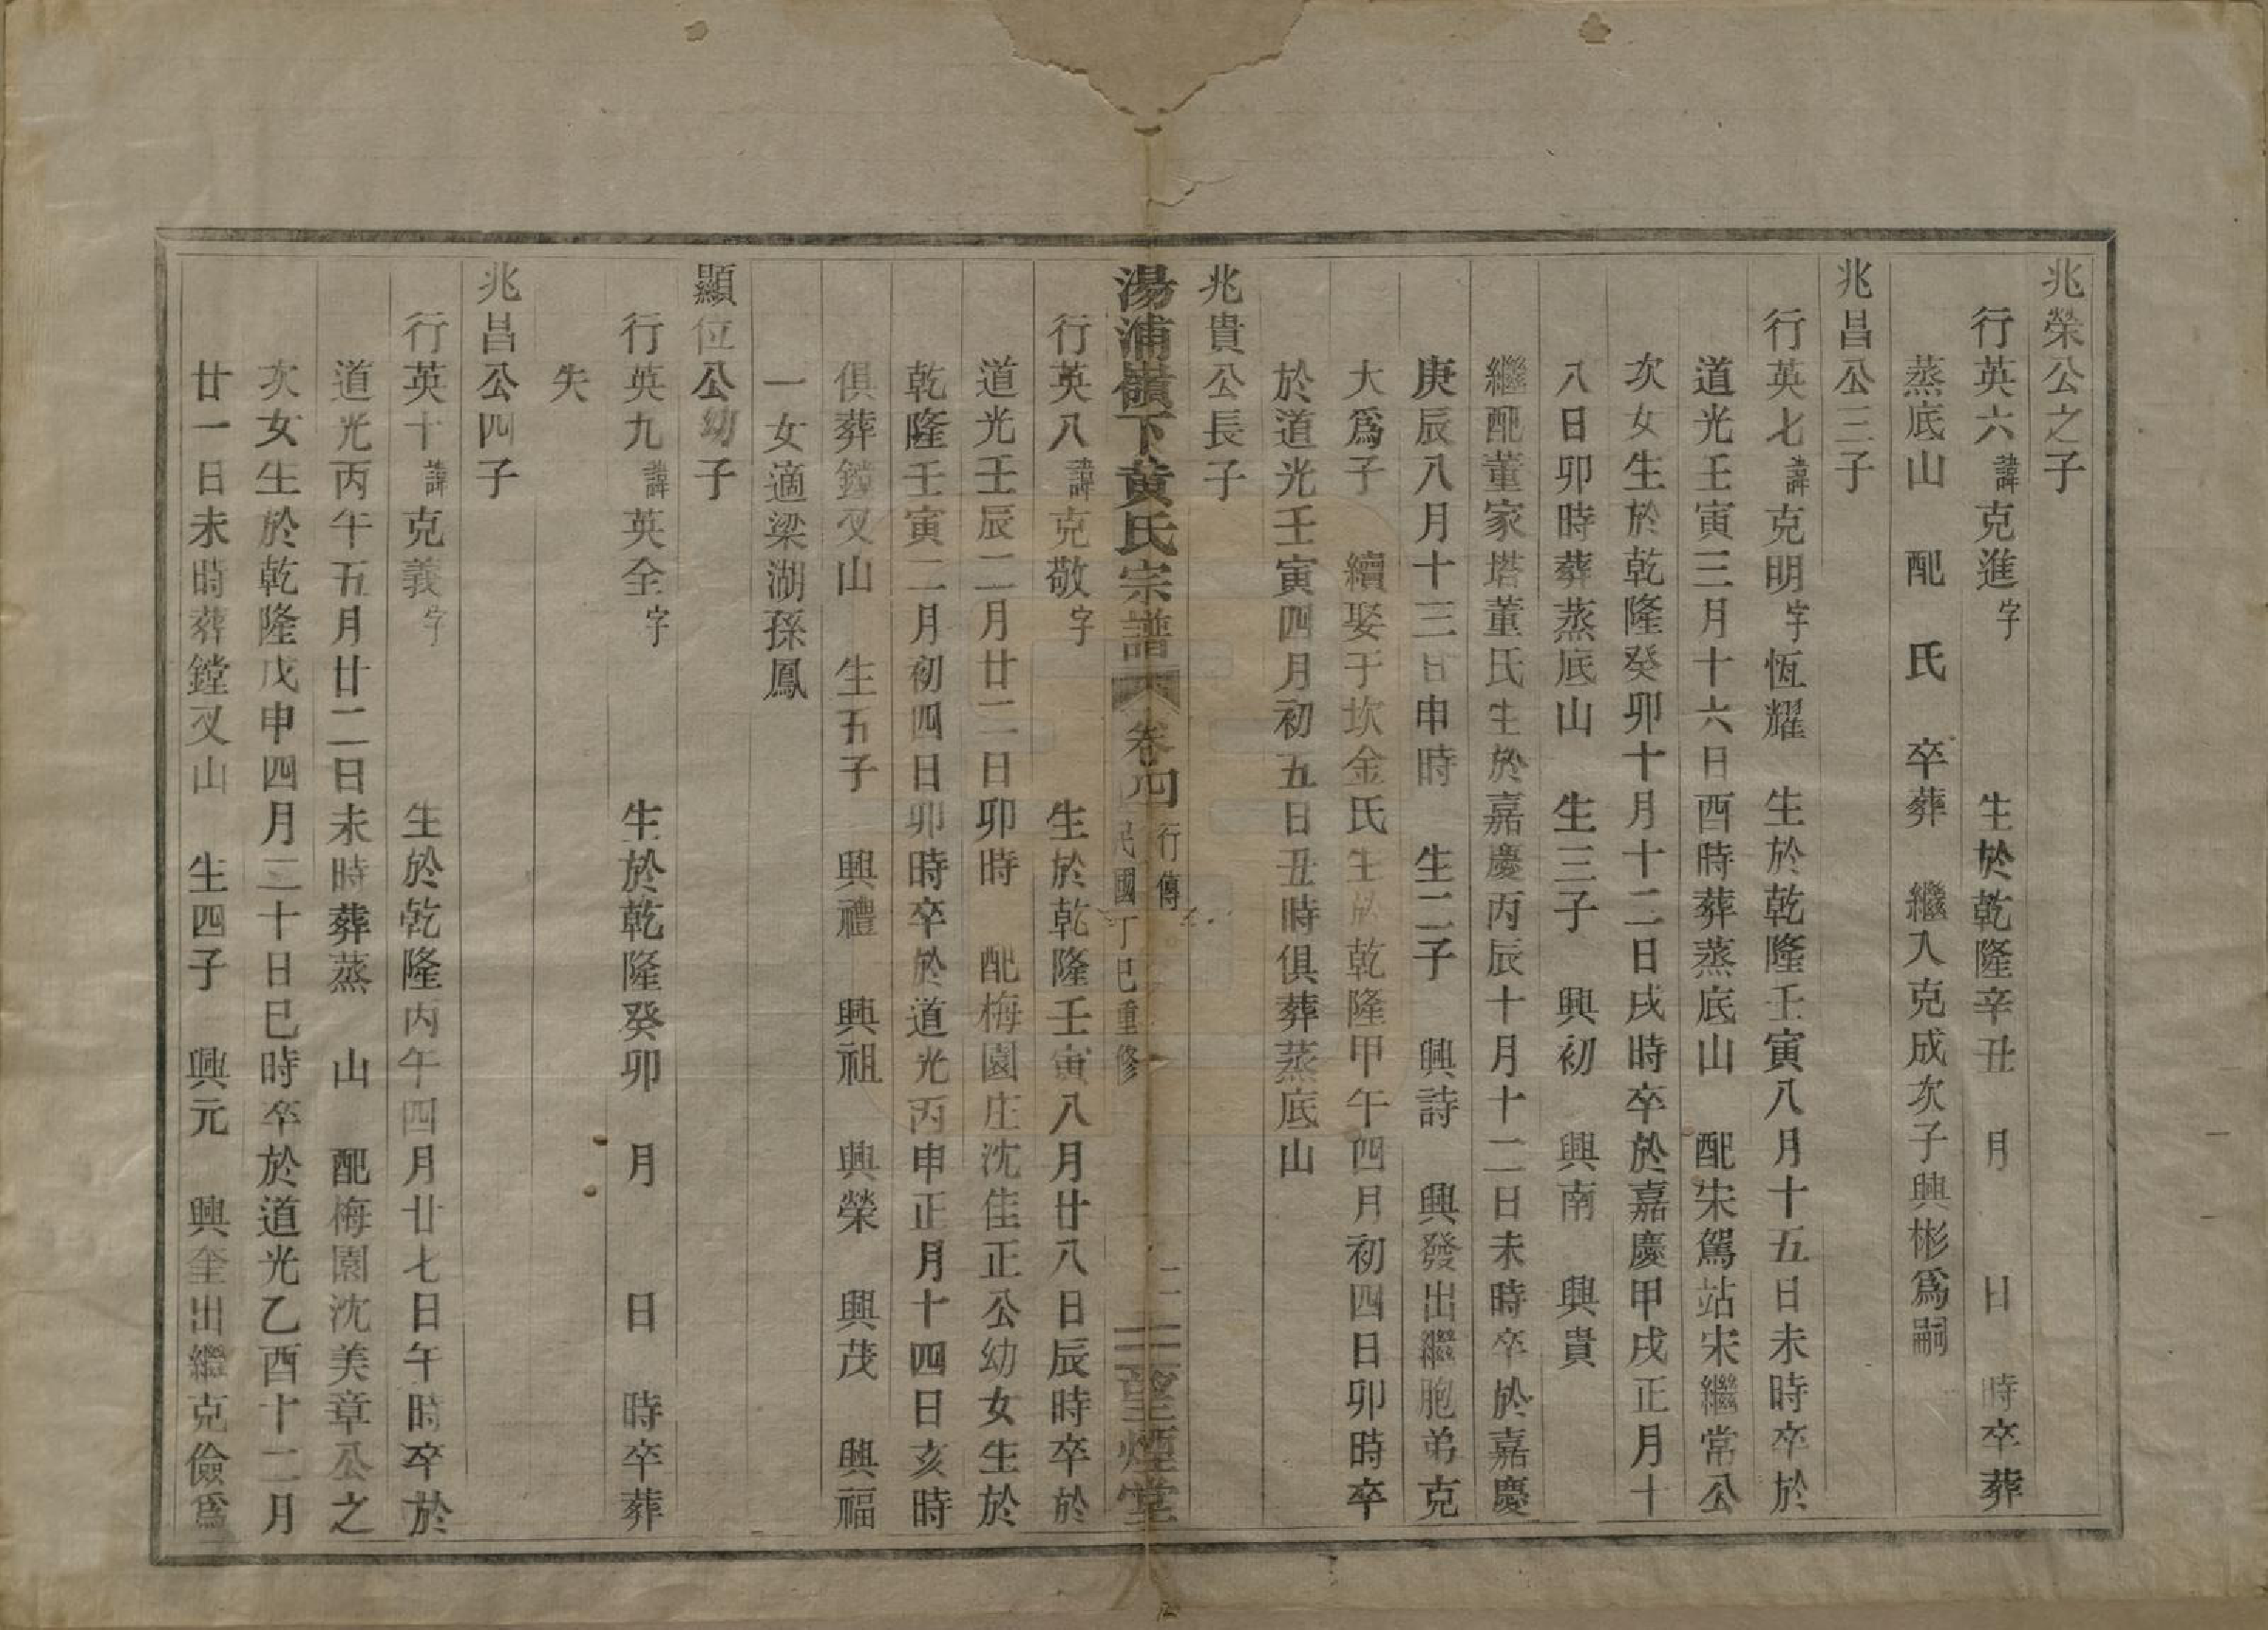 兆榮公之子
行英六諱克進字　生於乾隆辛丑　月　日　時卒葬
蒸底山　配　氏　卒葬　繼入克成次子興彬爲嗣
兆昌公三子
行英七諱克明字恆耀　生於乾隆壬寅八月十五日未時卒於
道光壬寅三月十六日酉時葬蒸底山　配宋駕站宋繼常公
次女生於乾隆癸卯十月十二日戌時卒於嘉慶甲戌正月十
八日卯時葬蒸底山　生三子　興初　興南　興貴
繼配董家塔董氏生於嘉慶丙辰十月十二日未時卒於嘉慶
庚辰八月十三日申時　生二子　興詩　興發出繼胞弟克
大爲子　續娶于坎金氏生於乾隆甲午四月初四日卯時卒
於道光壬寅四月初五日丑時俱葬蒸底山
兆貴公長子
湯浦嶺下黄氏宗譜　卷四　行傳　民國丁巳重修　望煙堂
行英八諱克敬字　生於乾隆壬寅八月廿八日辰時卒於
道光壬辰二月廿二日卯時　配梅園庄沈佳正公幼女生於
乾隆壬寅二月初四日卯時卒於道光丙申正月十四日亥時
俱葬鏜叉山　生五子　興禮　興祖　興榮　興茂　興福
一女適梁湖孫鳳
顯位公幼子
行英九諱英全字　生於乾隆癸卯　月　日　時卒葬
失
兆昌公四子
行英十諱克義字　生於乾隆丙午四月廿七日午時卒於
道光丙午五月廿二日未時葬蒸　山　配梅園沈美章公之
次女生於乾隆戊申四月三十日巳時卒於道光乙酉十二月
廿一日未時葬鏜叉山　生四子　興元　興奎出繼克儉爲